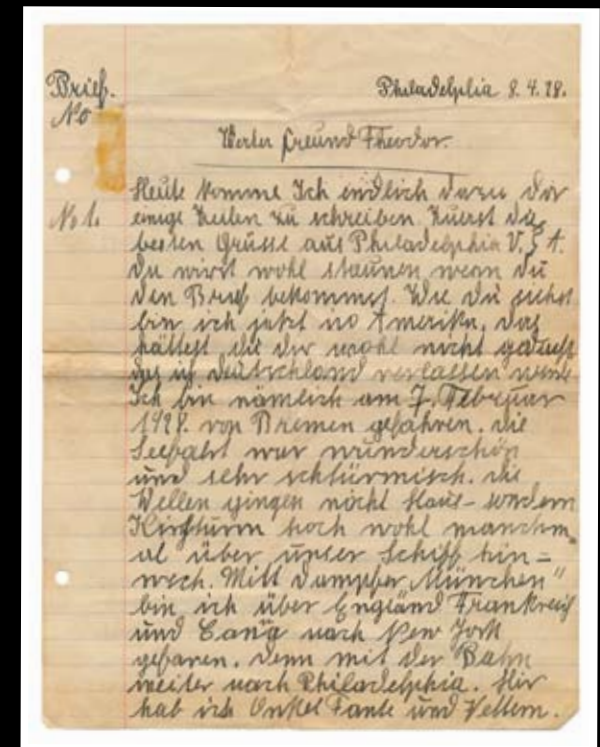 Brief.
No
Philadelphia 8.4.28.
Werter Freund Theodor.
No 1.
Heute komme Ich endlich dazu dir
einige Zeilen zu schreiben Zuerst die
besten Grüsse aus Philadelphia V.S.A.
Du wirst wohl staunen wenn du
den Brief bekommst. Wie du siehst
bin ich jetzt in Amerika, das
hättest du dir wohl nicht gedacht
das ich Deutschland verlassen werde
Ich bin nämlich am 7. Februar
1928. von Bremen gefahren. die
Seefahrt war wunderschön
und sehr schtürmisch. die
Wellen gingen nicht Haus- sondern
Kirchturm hoch wohl manchm
al über unser Schiff hin-
wech. Mitt Dampfher „München"
bin ich über England Frankreich
und nach New York
gefaren. denn mit der Bahn
weiter nach Philadelphia. Hir
hab ich Onkel Tante und Vettern.